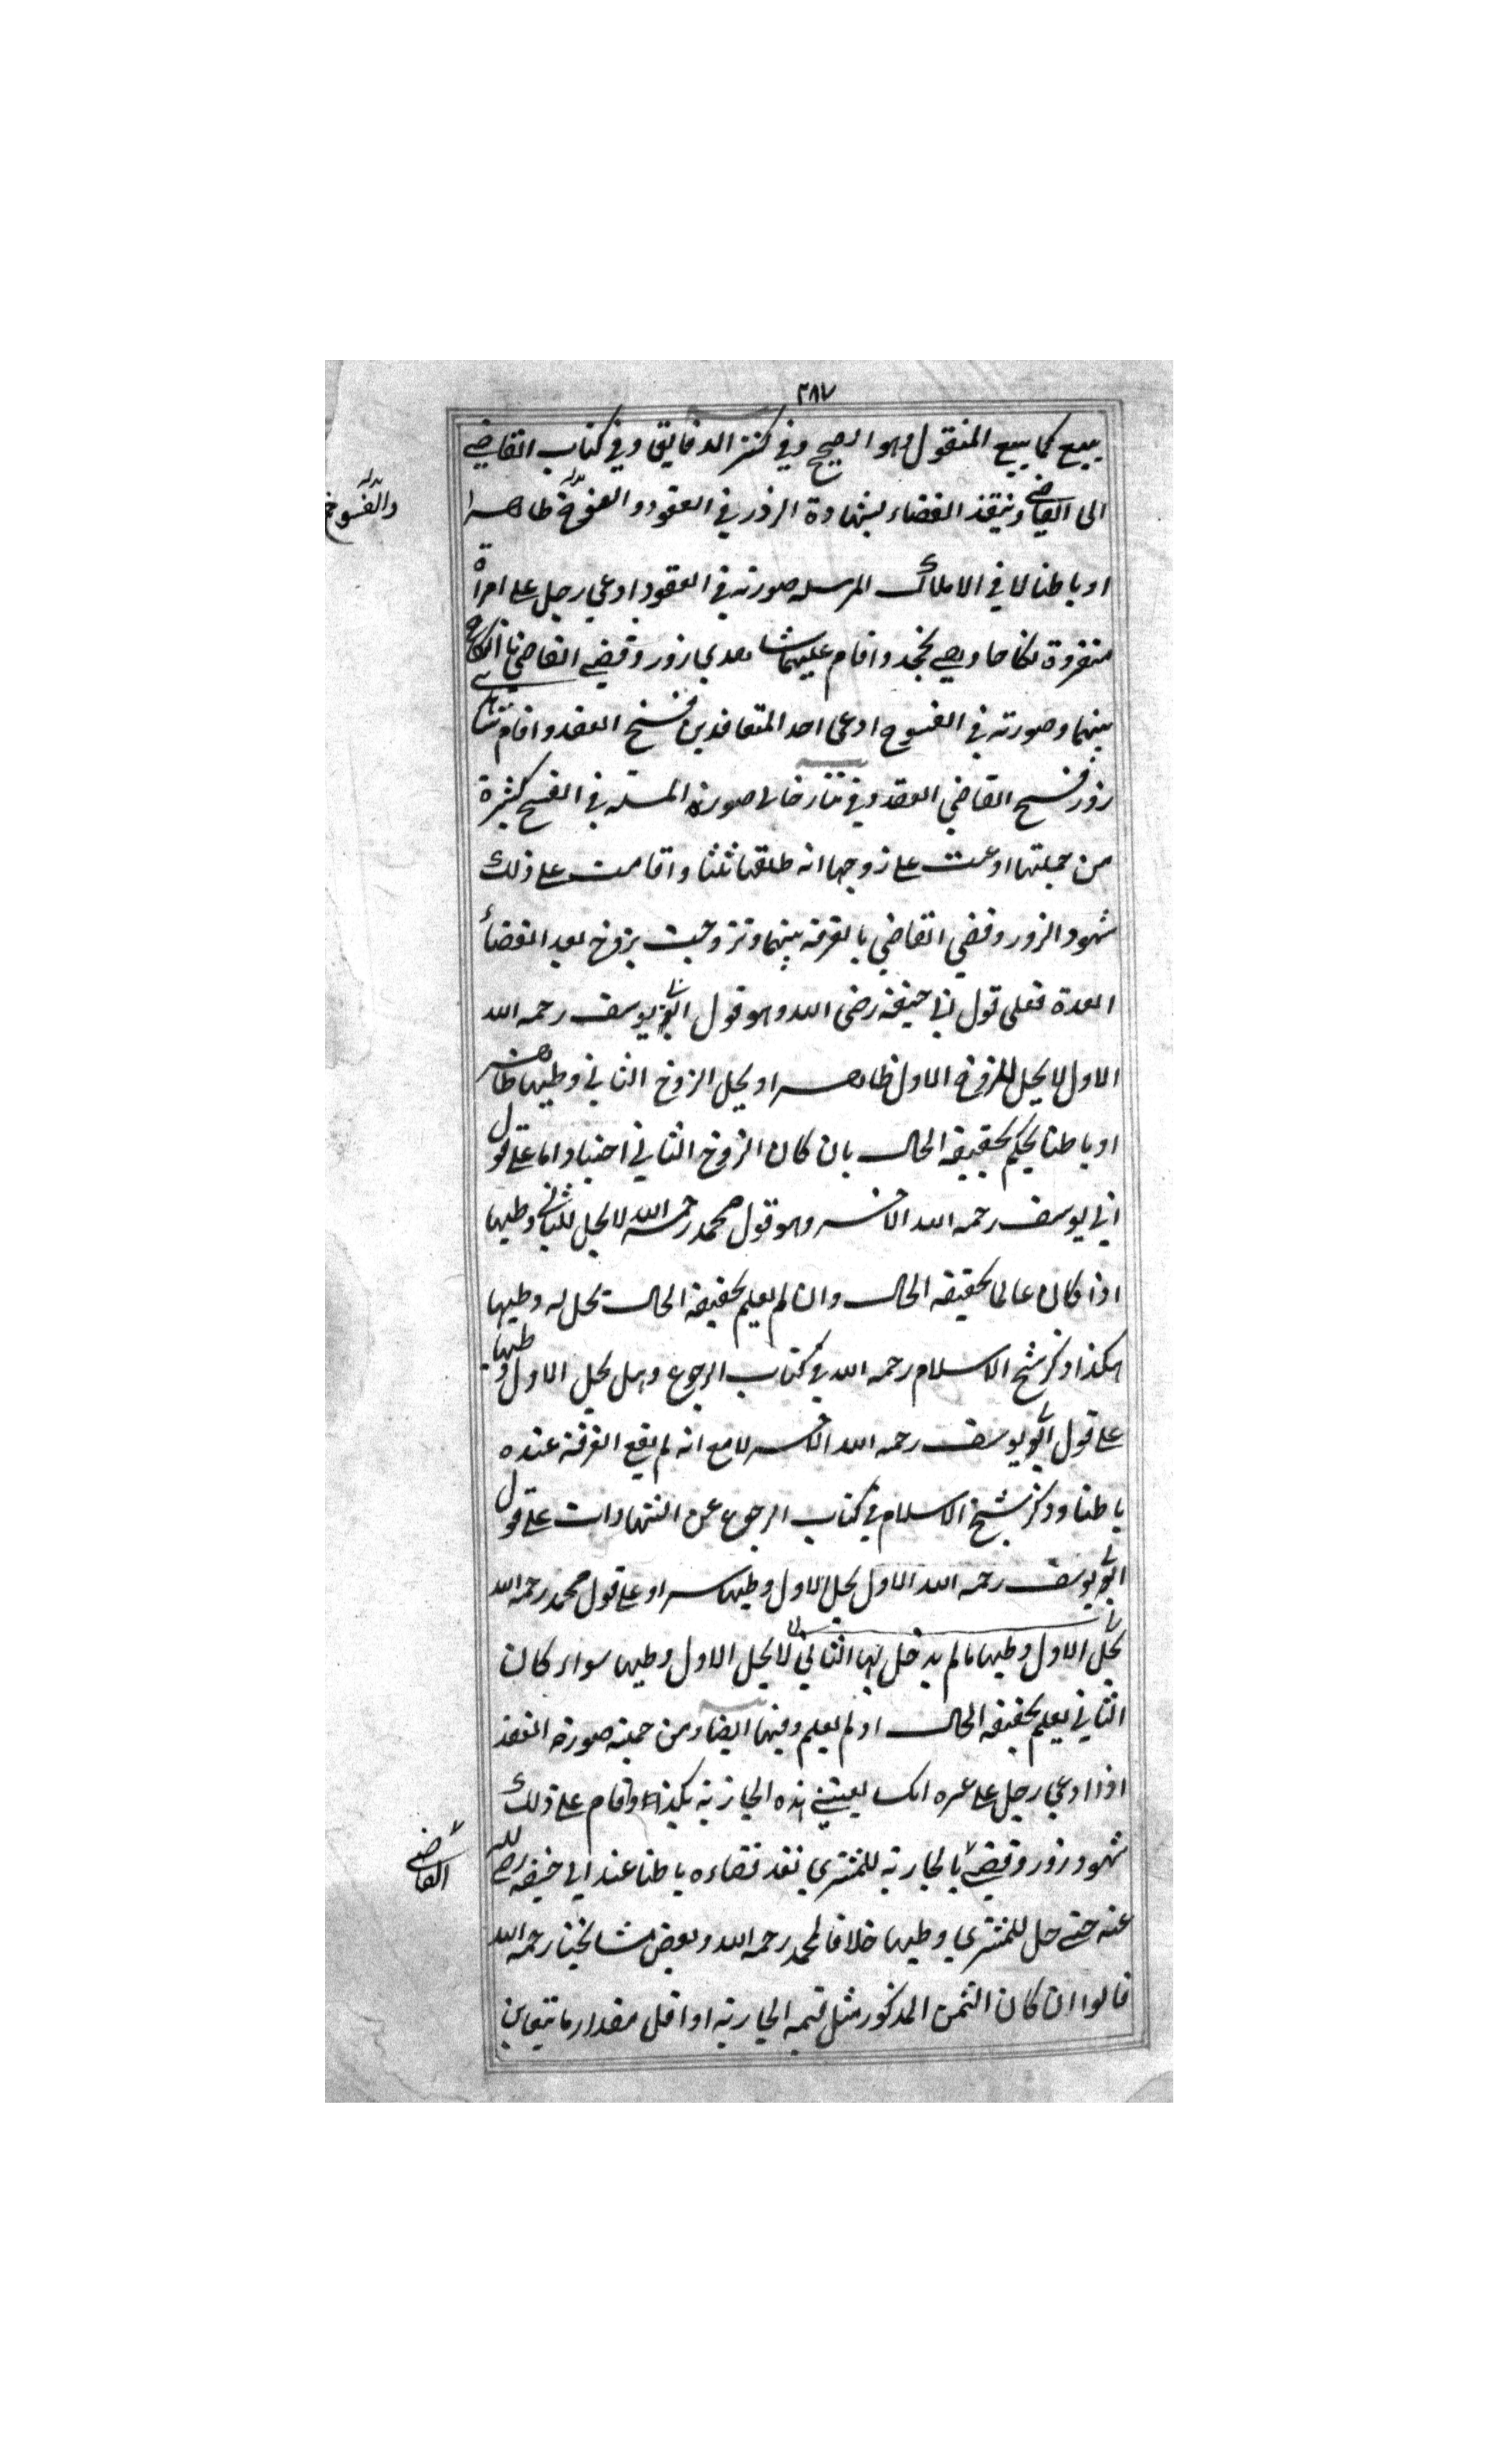 ٢٨٧
يبيع كما يبيع المنقول وهو الصحيح وفي كنز الدقايق وفي كتاب القاضي
الى القاضي وينفذ القضاء بشهادة الزور في العقود والفسوخ ظاهرا
والفسوخ
او باطنا لا في الاملاك المرسله صورته في العقود ادعى رجل على امراة
نكاحا وهي تجحد واقام عليها شاهدي زور وقضى القاضي بالنكاح
بينهما وصورته في الفسوخ ادعى احد المتعاقدين فسخ العقد واقام
زور ففسخ القاضي العقد وفي تتارخان صورة المسئلة في الفسخ كثيرة
من جملتها ادعت على زوجها انه طلقها ثلثا واقامت على ذلك
شهود الزور وقضى القاضي بالفرقه بينهما وتزوجت بزوج بعد انقضاء
العدة فعلى قول ابي حنيفه رضى الله وهو قول ابو يوسف رحمه الله
الاول لا يحل للزوج الاول ظاهرا ويحل الزوج الثاني وطيها ظاهرا
او باطنا بحكم بحقيقه الحال بان كان الزوج الثاني اجنبيا واما على قول
ابي يوسف رحمه الله الاخر وهو قول محمد رحمه الله لا يحل للثاني وطيها
اذا كان عالما بحقيقه الحال وان لم يعلم بحقيقة الحال يحل له وطيها
هكذا ذكر شيخ الاسلام رحمه الله في كتاب الرجوع وهل يحل الاول وطيها
على قول ابو يوسف رحمه الله الاخر لا مع انه لم يقع الفرقة عنده
باطنا وذكر شيخ الاسلام في كتاب الرجوع عن الشهادات على قول
ابو يوسف رحمه الله الاول يحل الاول وطيها سرا وعلى قول محمد رحمه الله
يحل الاول وطيها مالم يدخل بها الثاني لا يحل الاول وطيها سواء كان
الثاني يعلم بحقيقه الحال او لم يعلم وفيها ايضا ومن جملة صورة العقد
اذا ادعى رجل على عمره انك بعتني هذه الجارية بكذا واقام على ذلك
شهود زور وقضى بالجارية للمشتري نفذ قضاءه باطنا عند ابي حنيفه رضي الله
القاضي
عنه حتى حل للمشتري وطيها خلافا لمحمد رحمه الله وبعض مشايخنا رحمه الله
قالوا ان كان الثمن المذكور مثل قيمه الجاريه او اقل مقدار ما يتغابن